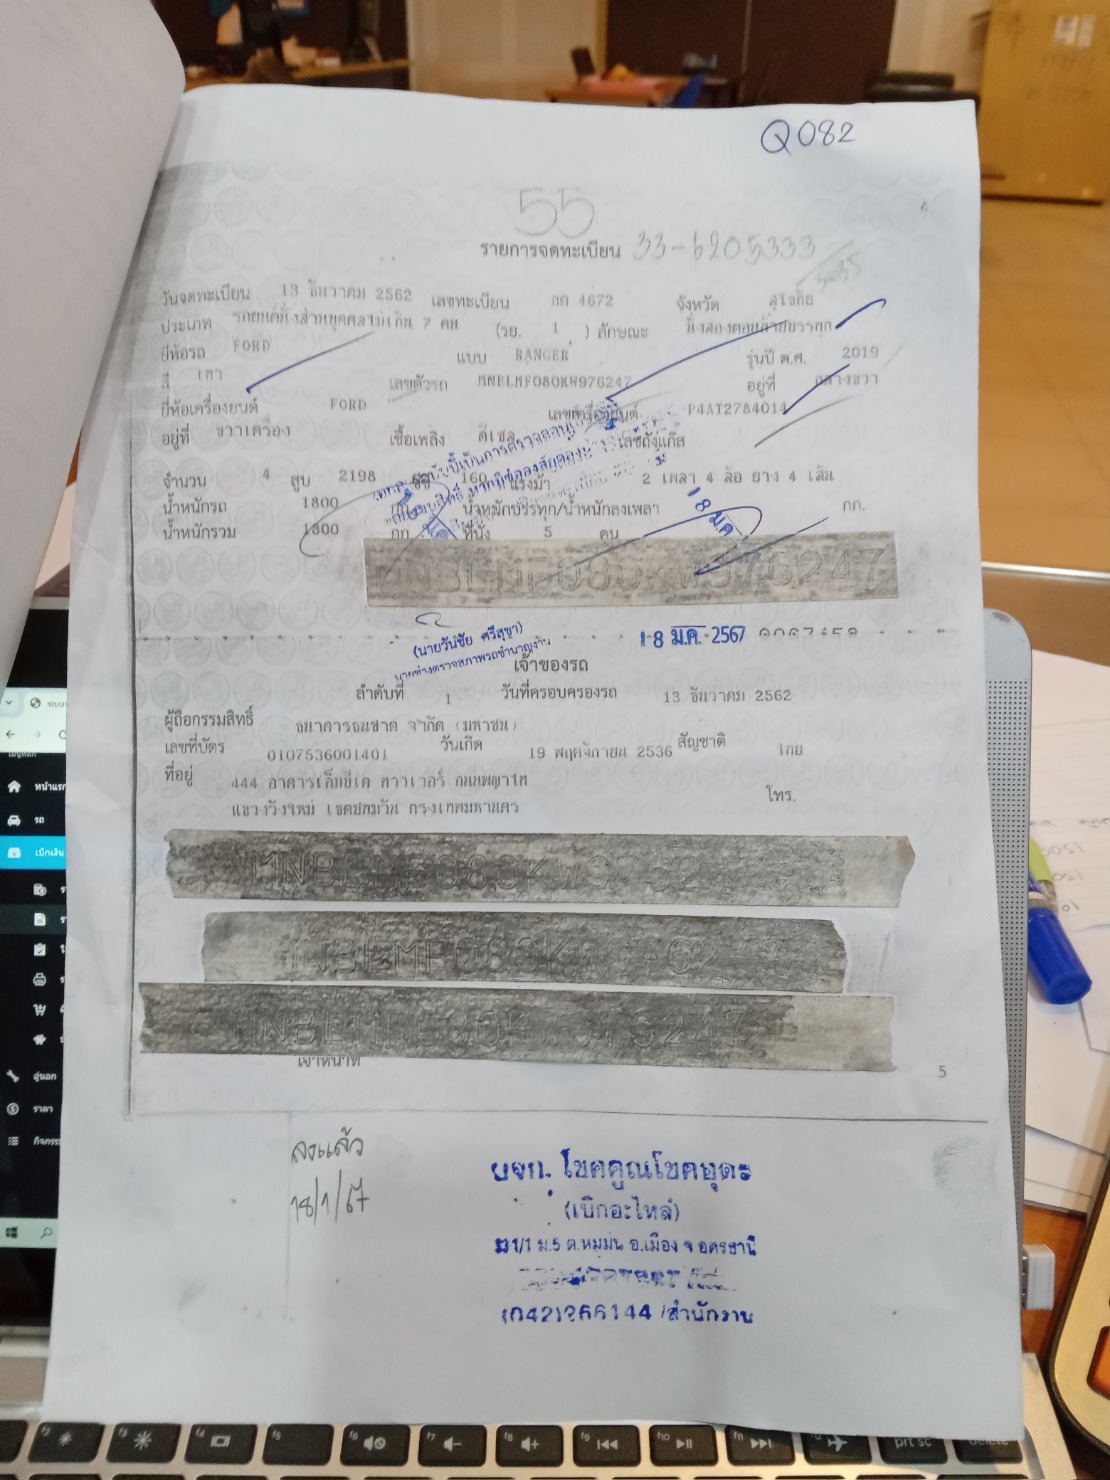 Q082
55
4
รายการจดทะเบียน 33-6205333
วันจดทะเบียน 13 ธันวาคม 2562 เลขทะเบียน กค 4672 จังหวัด สุโขทัย
ประเภท รถยนต์นั่งส่วนบุคคลไม่เกิน 7 คน (รย. 1 ) ลักษณะ นั่งสองตอนท้ายบรรทุก
ยี่ห้อรถ FORD แบบ RANGER รุ่นปี ค.ศ. 2019
สี เทา เลขตัวรถ MNBLMF080KW976247 อยู่ที่ กลางขวา
ยี่ห้อเครื่องยนต์ FORD เลขเครื่องยนต์ P4AT2784014
อยู่ที่ ขวาเครื่อง เชื้อเพลิง ดีเซล เลขถังแก๊ส
จำนวน 4 สูบ 2198 ซีซี 160 แรงม้า 2 เพลา 4 ล้อ ยาง 4 เส้น
น้ำหนักรถ 1800 กก. น้ำหนักบรรทุก/น้ำหนักลงเพลา กก.
น้ำหนักรวม 1800 กก. ที่นั่ง 5 คน
18 ม.ค.
(นายวันชัย ศรีสุขา)
นายช่างตรวจสภาพรถชำนาญงาน
18 ม.ค. 2567
เจ้าของรถ
ลำดับที่ 1 วันที่ครอบครองรถ 13 ธันวาคม 2562
ผู้ถือกรรมสิทธิ์ ธนาคารธนชาต จำกัด (มหาชน)
เลขที่บัตร 0107536001401 วันเกิด 19 พฤศจิกายน 2536 สัญชาติ ไทย
ที่อยู่ 444 อาคารเอ็มบีเค ทาวเวอร์ ถนนพญาไท โทร.
แขวงวังใหม่ เขตปทุมวัน กรุงเทพมหานคร
เจ้าหน้าที่
5
ลงแล้ว
18/1/67
บจก. โชคคูณโชคอุดร
(เบิกอะไหล่)
ม.5 ต.หมูม่น อ.เมือง จ.อุดรธานี
(042)266144 /สำนักงาน